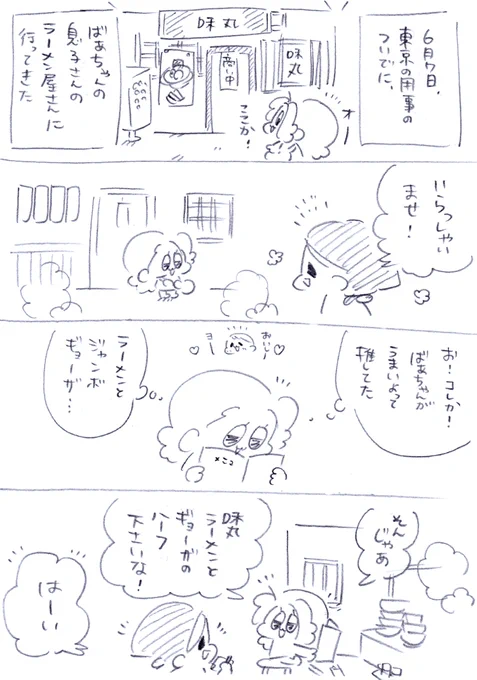 6月7日、
東京の用事の
ついでに、
味丸
味丸
商い中
オー
ここか!
ばあちゃんの
息子さんの
ラーメン屋さんに
行ってきた
いらっしゃい
ませ!
お!コレか!
ばあちゃんが
うまいよって
推してた
おいしー
ヨー
メニュー
ラーメンと
ジャンボ
ギョーザ…
そん
じゃあ
味丸
ラーメンと
ギョーザの
ハーフ
下さいな!
はーい